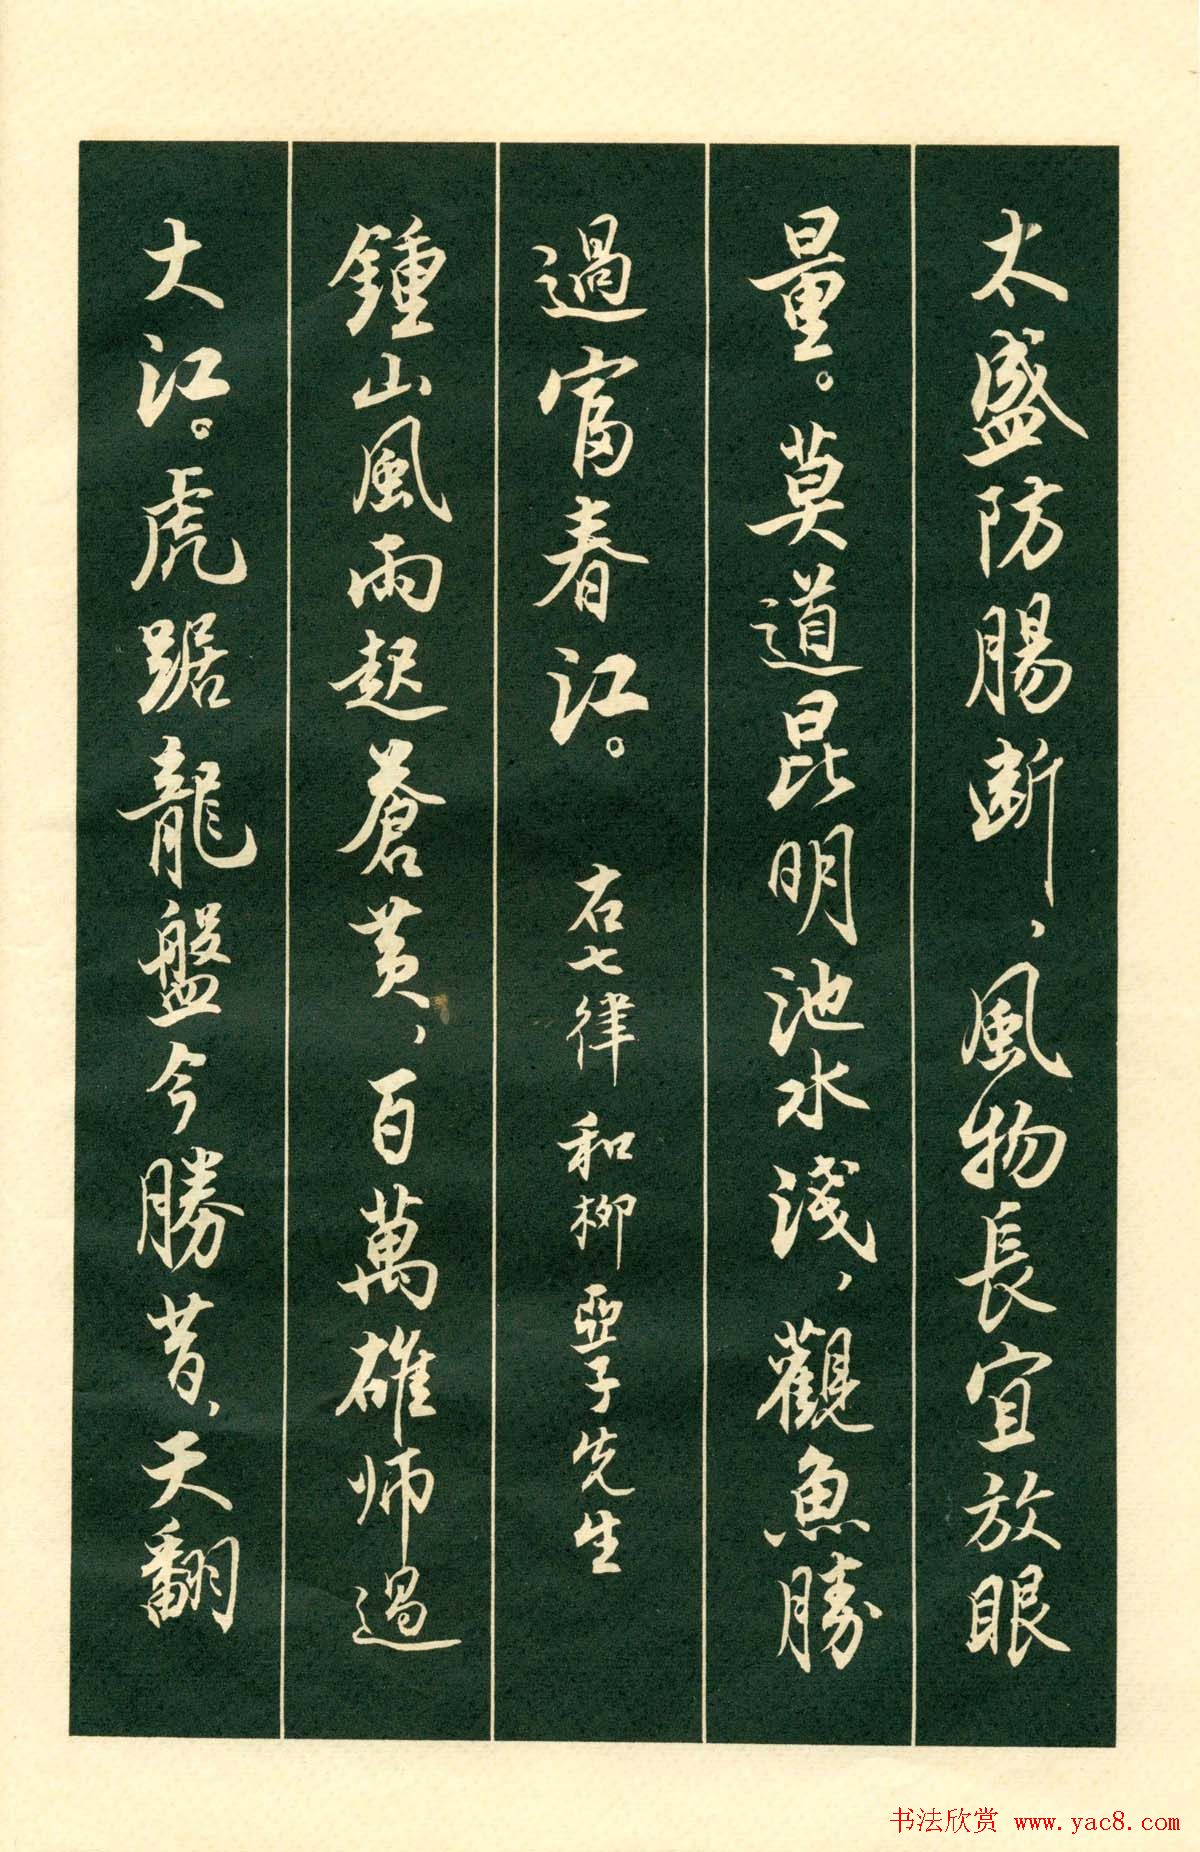 太盛防腸斷，風物長宜放眼
量。莫道昆明池水淺，觀魚勝
過富春江。 右七律 和柳亞子先生
鍾山風雨起蒼黃，百萬雄师過
大江。虎踞龍盤今勝昔，天翻
书法欣赏 www.yac8.com